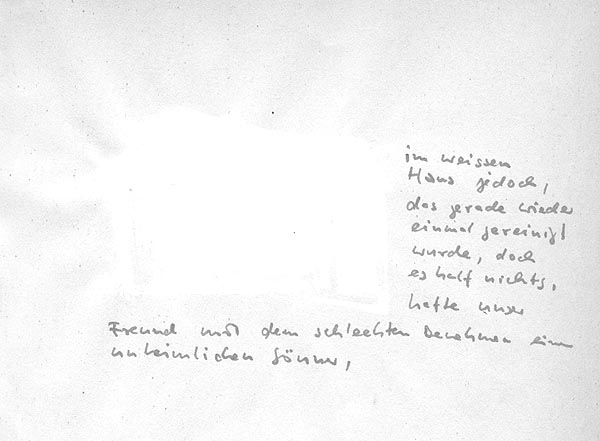 im weissen
Haus jedoch,
das gerade wieder
einmal gereinigt
wurde, doch
es half nichts,
hatte unser
Freund mit dem schlechten Benehmen einen
unheimlichen Gönner,